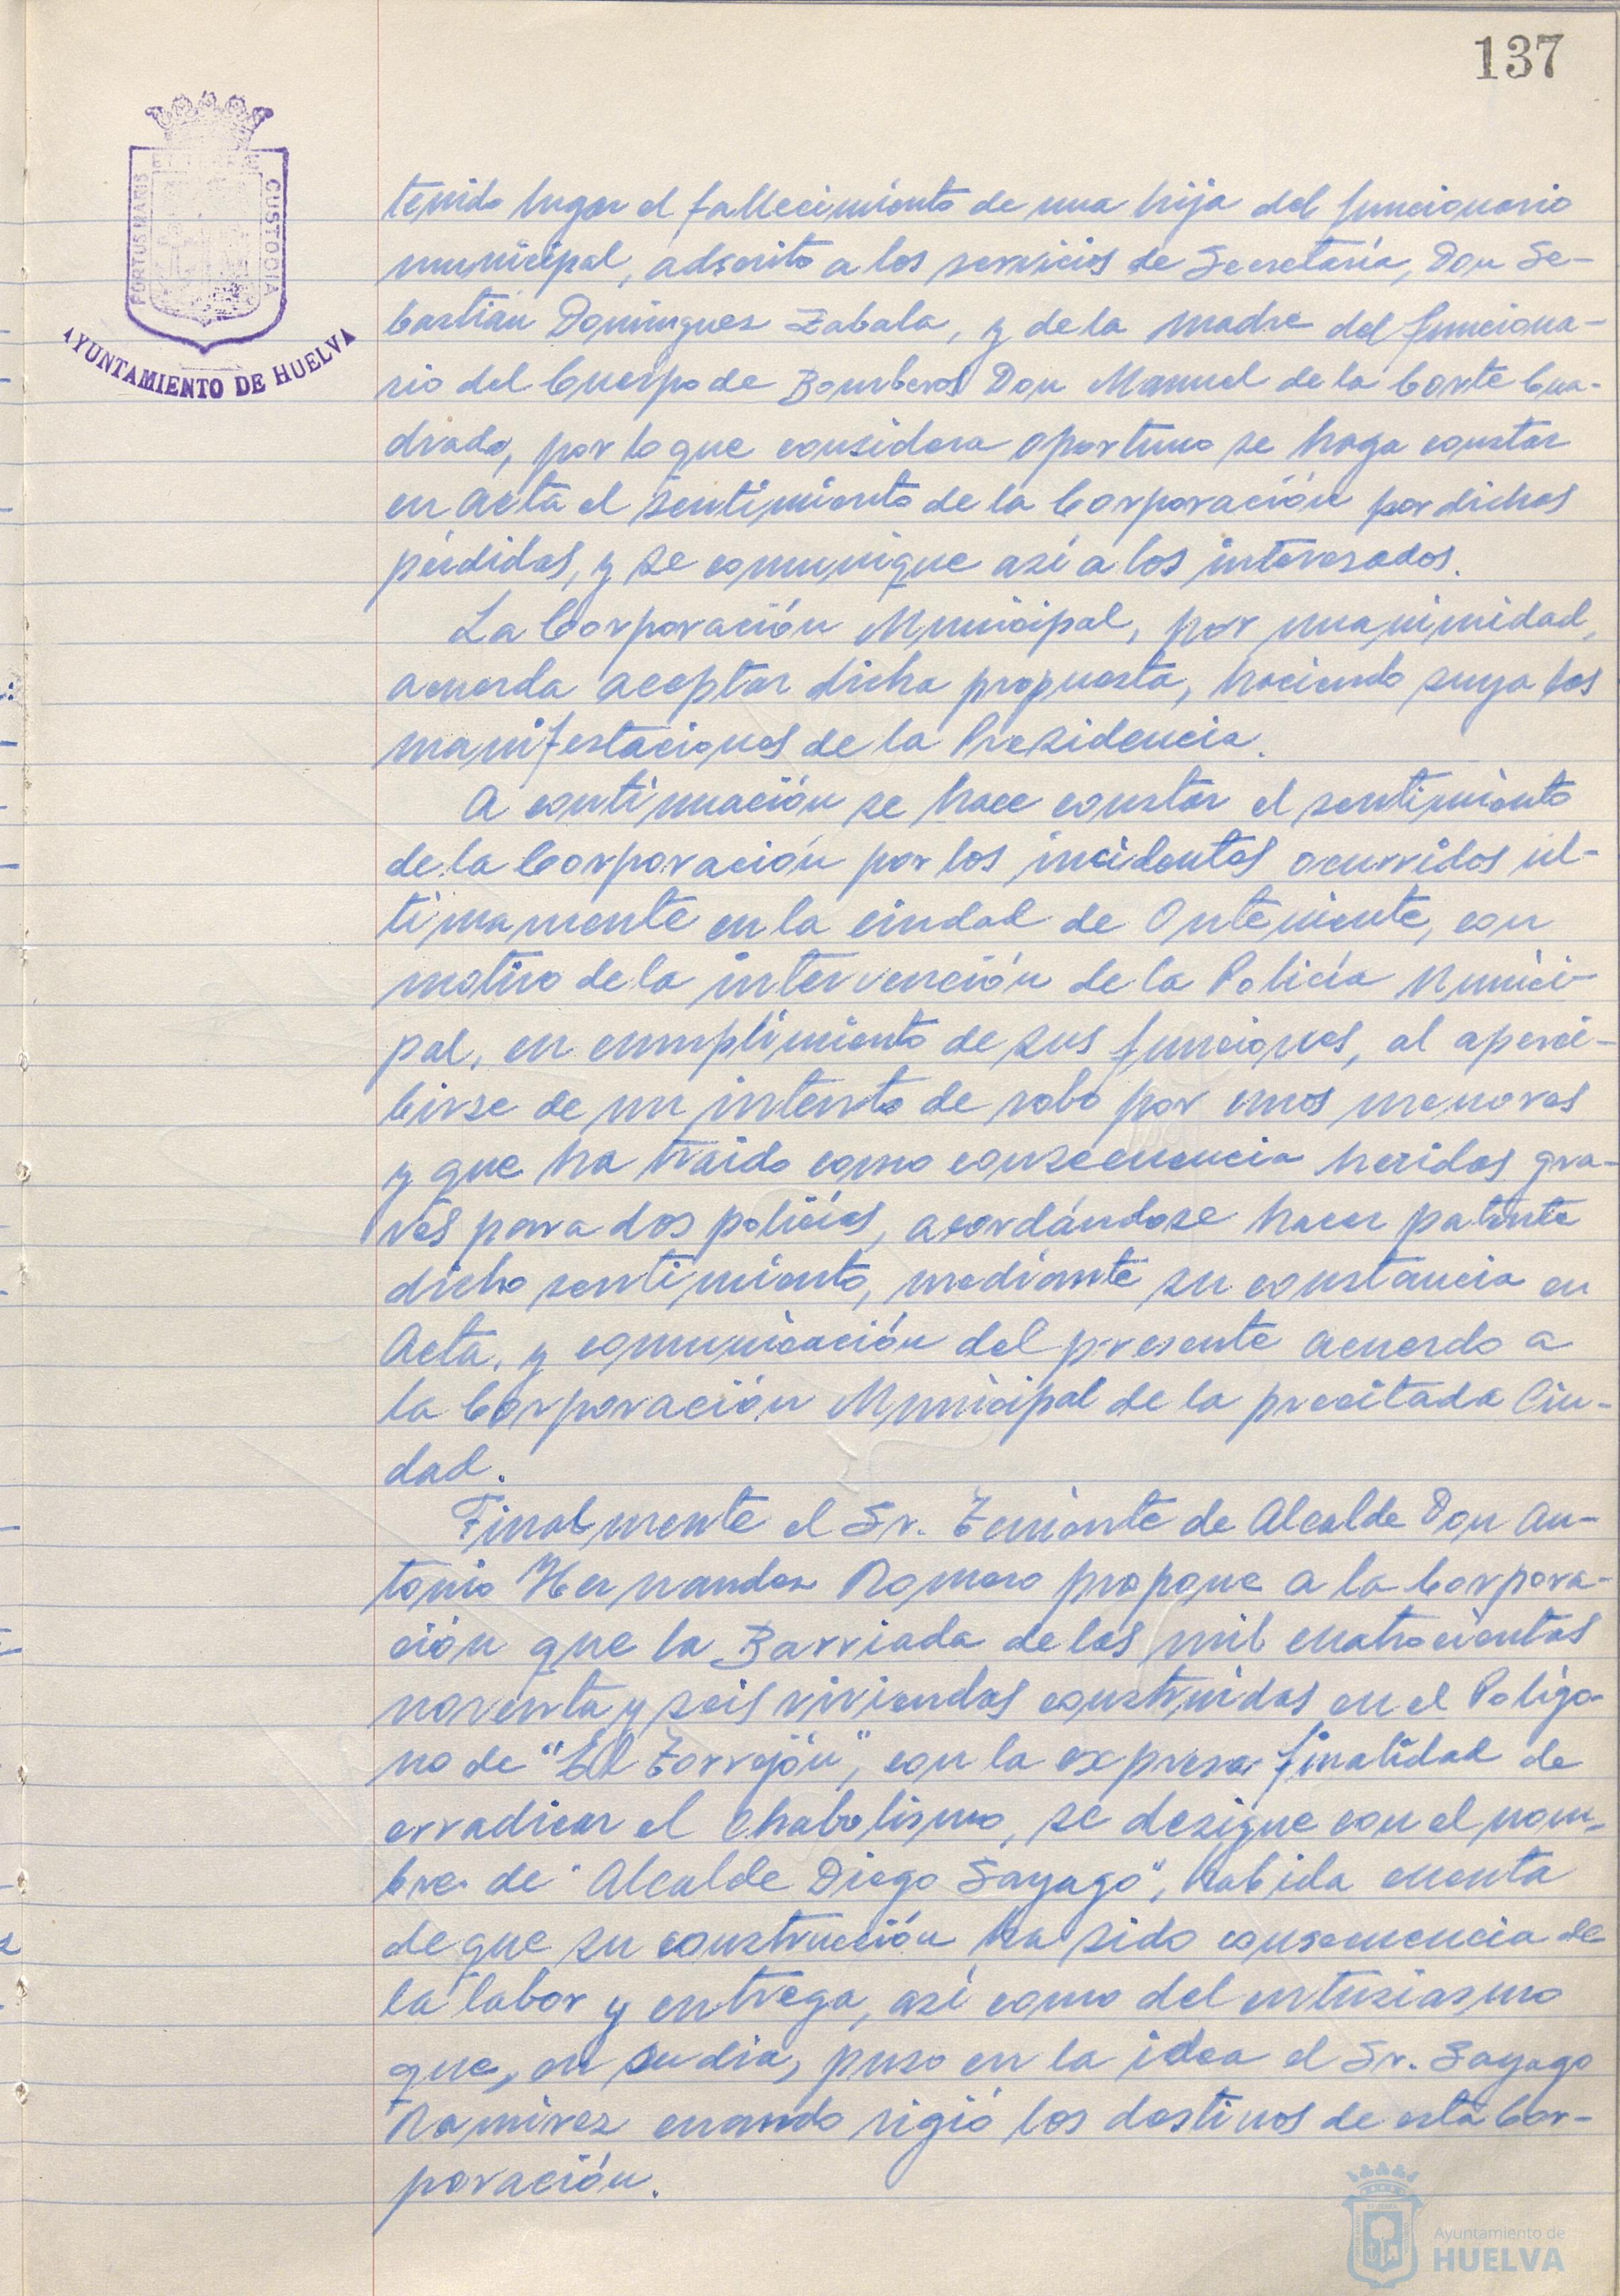 137
ET TERRAE
PORTUS MARIS
CUSTODIA
AYUNTAMIENTO DE HUELVA
tenido lugar el fallecimiento de una hija del funcionario
municipal, adscrito a los servicios de Secretaría, Don Se-
bastián Domínguez Zabala, y de la madre del funciona-
rio del Cuerpo de Bomberos Don Manuel de la Corte Cua-
drado, por lo que considera oportuno se haga constar
en Acta el sentimiento de la Corporación por dichas
pérdidas, y se comunique así a los interesados.
La Corporación Municipal, por unanimidad,
acuerda aceptar dicha propuesta, haciendo suya las
manifestaciones de la Presidencia.
A continuación se hace constar el sentimiento
de la Corporación por los incidentes ocurridos úl-
timamente en la ciudad de Onteniente, con
motivo de la intervención de la Policía Munici-
pal, en cumplimiento de sus funciones, al aperci-
birse de un intento de robo por unos menores
y que ha traido como consecuencia heridas gra-
ves para dos policías, acordándose hacer patente
dicho sentimiento, mediante su constancia en
Acta, y comunicación del presente acuerdo a
la Corporación Municipal de la precitada Ciu-
dad.
Finalmente el Sr. Teniente de Alcalde Don An-
tonio Hernandez Romero propone a la Corpora-
ción que la Barriada de las mil cuatrocientas
noventa y seis viviendas construidas en el Polígo-
no de "El Torrejón", con la expresa finalidad de
erradicar el chabolismo, se designe con el nom-
bre de "Alcalde Diego Sayago", habida cuenta
de que su construcción ha sido consecuencia de
la labor y entrega, así como del entusiasmo
que, en su dia, puso en la idea el Sr. Sayago
Ramirez cuando rigió los destinos de esta Cor-
poración.
Ayuntamiento de
HUELVA